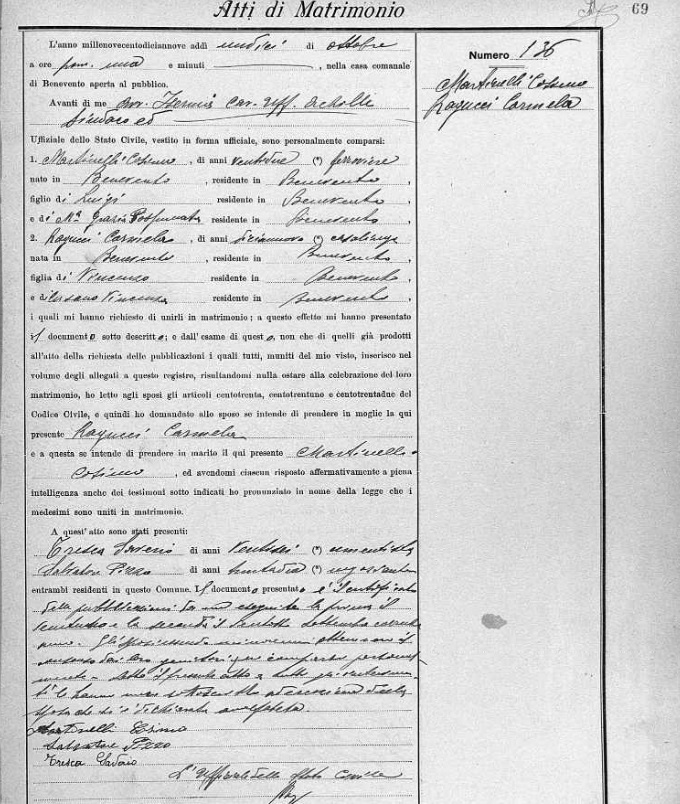 Atti di Matrimonio
69
L'anno millenovecentodiciannove addì undici di ottobre
a ore pom. una e minuti , nella casa comunale
di Benevento aperta al pubblico.
Avanti di me Cav. Uff. Achille
Sindaco ed
Uffiziale dello Stato Civile, vestito in forma ufficiale, sono personalmente comparsi:
1. Martinelli Cosimo , di anni ventidue (*) ferroviere
nato in Benevento , residente in Benevento ,
figlio di Luigi residente in Benevento ,
e di Ma Grazia residente in Benevento ;
2. Ragucci Carmela , di anni diciannove (*) casalinga
nata in Benevento , residente in Benevento ,
figlia di Vincenzo residente in Benevento ,
e di Vincenza residente in Benevento ;
i quali mi hanno richiesto di unirli in matrimonio; a questo effetto mi hanno presentato
il documento sotto descritto; e dall'esame di questo, non che di quelli già prodotti
all'atto della richiesta delle pubblicazioni i quali tutti, muniti del mio visto, inserisco nel
volume degli allegati a questo registro, risultandomi nulla ostare alla celebrazione del loro
matrimonio, ho letto agli sposi gli articoli centotrenta, centotrentuno e centotrentadue del
Codice Civile, e quindi ho domandato allo sposo se intende di prendere in moglie la qui
presente Ragucci Carmela
e a questa se intende di prendere in marito il qui presente Martinelli
Cosimo , ed avendomi ciascun risposto affermativamente a piena
intelligenza anche dei testimoni sotto indicati ho pronunziato in nome della legge che i
medesimi sono uniti in matrimonio.
A quest'atto sono stati presenti:
Tresca Saverio di anni ventisei (*)
Salvatore Pizzo di anni trentadue (*) negoziante
entrambi residenti in questo Comune. Il documento presentato è il certificato
delle pubblicazioni da me eseguite la prima il
e la seconda il ventotto settembre corrente
anno. Gli sposi essendo minorenni ottennero il
consenso dai loro genitori qui comparsi personal
mente. Letto il presente atto a tutti gl'intervenu
ti lo hanno meco sottoscritto ad eccezione della
sposa che si è dichiarata analfabeta.
Martinelli
Salvatore Pizzo
Tresca
L'Uffiziale dello Stato Civile
Numero 136
Martinelli Cosimo
Ragucci Carmela